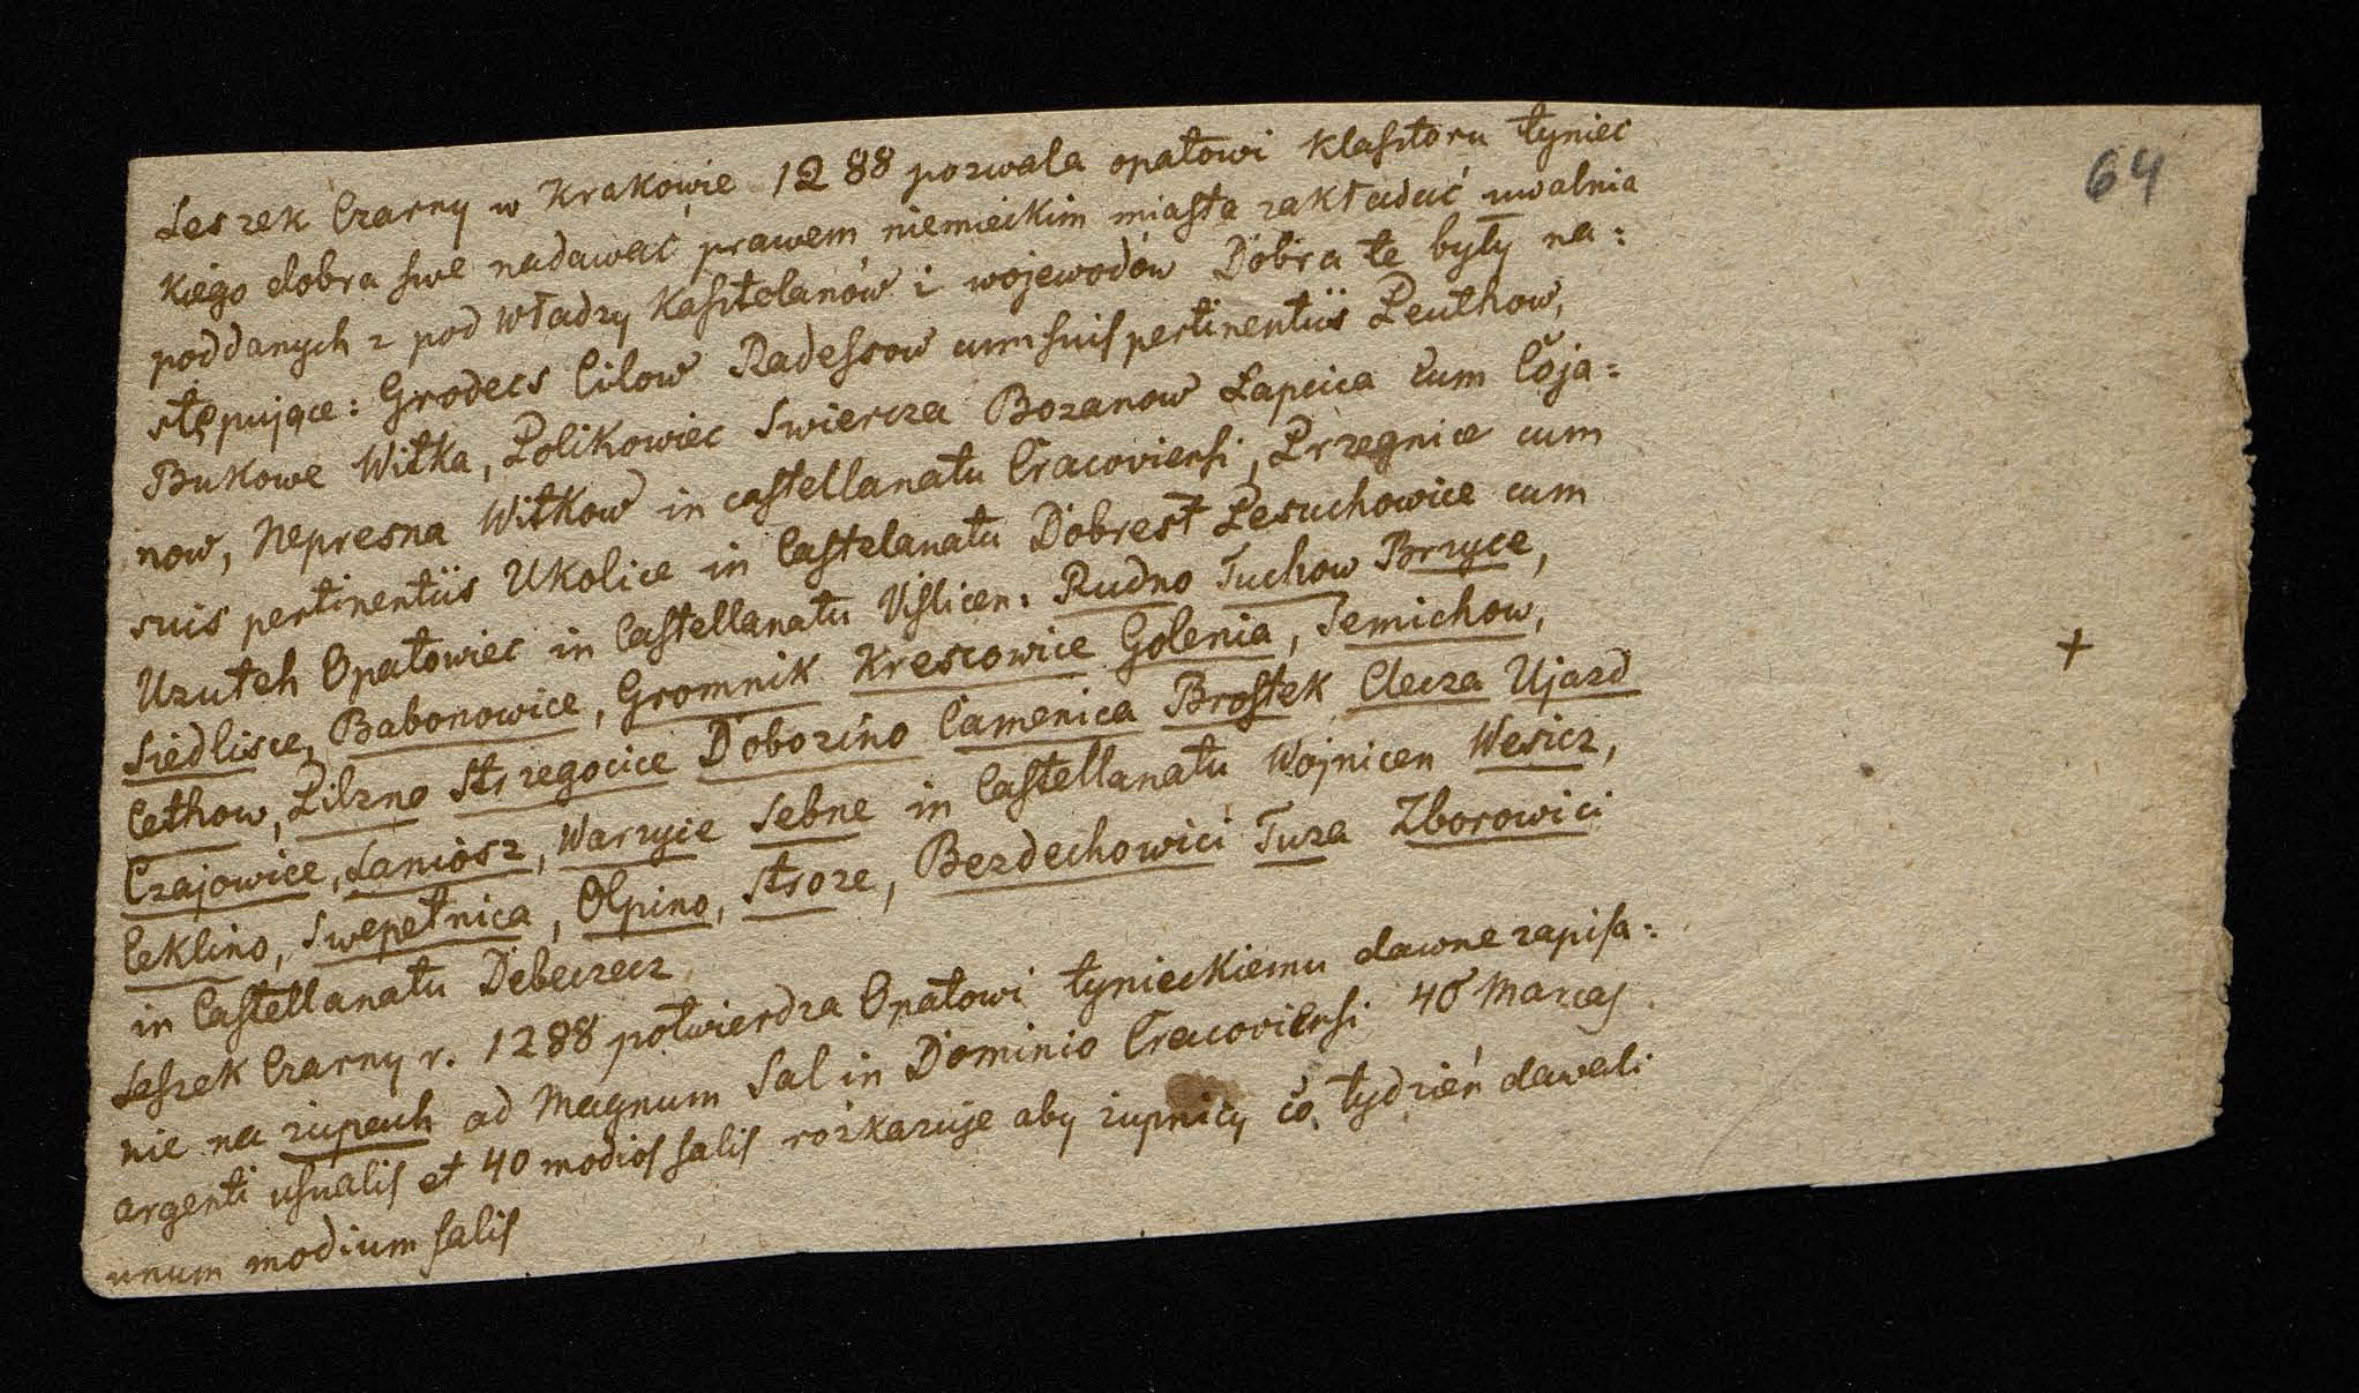 64
Leszek Czarny w Krakowie 1288 pozwala opatowi klasztoru tyniec
kiego dobra swe nadawać prawem niemieckim miasta zakładać uwalnia
poddanych z pod władzy Kasztelanów i wojewodów Dobra te były na:
stępujące: Grodecs Cilow Radessow cum suis pertinentiis Peuthow,
Bukowe Witka, Polikowiec Swiercza Bozanow Lapcica cum Coja:
now, Nepresna Witkow in castellanatu Cracoviensi, Przegnice cum
suis pertinentiis Ukolice in Castelanatu Dobrest Pesuchowice cum
Uzuteh Opatowiec in Castellanatu Vislicen: Rudno Tuchow Brzyce,
Siedlisce, Babonowice, Gromnik Krescowice Golenia, Semichow,
Cethow, Pilzno Strzegocice Doborino Camenica Brostek Clecza Ujazd
Czajowice, Laniosz, Warzycie Sebne in Castellanatu Wojnicen Wesicz,
Ceklino, Swepetnica, Olpino, Stroze, Bezdechowici Tuza Zborowici
in Castellanatu Debeczecz
Leszek Czarny r. 1288 potwierdza Opatowi tynieckiemu dawne zapisa:
nie na żupach ad Magnum Sal in Dominio Cracoviensi 40 Marcas
argenti usualis et 40 modios salis rozkazuje aby żupnicy co tydzień dawali
unum modium salis
+